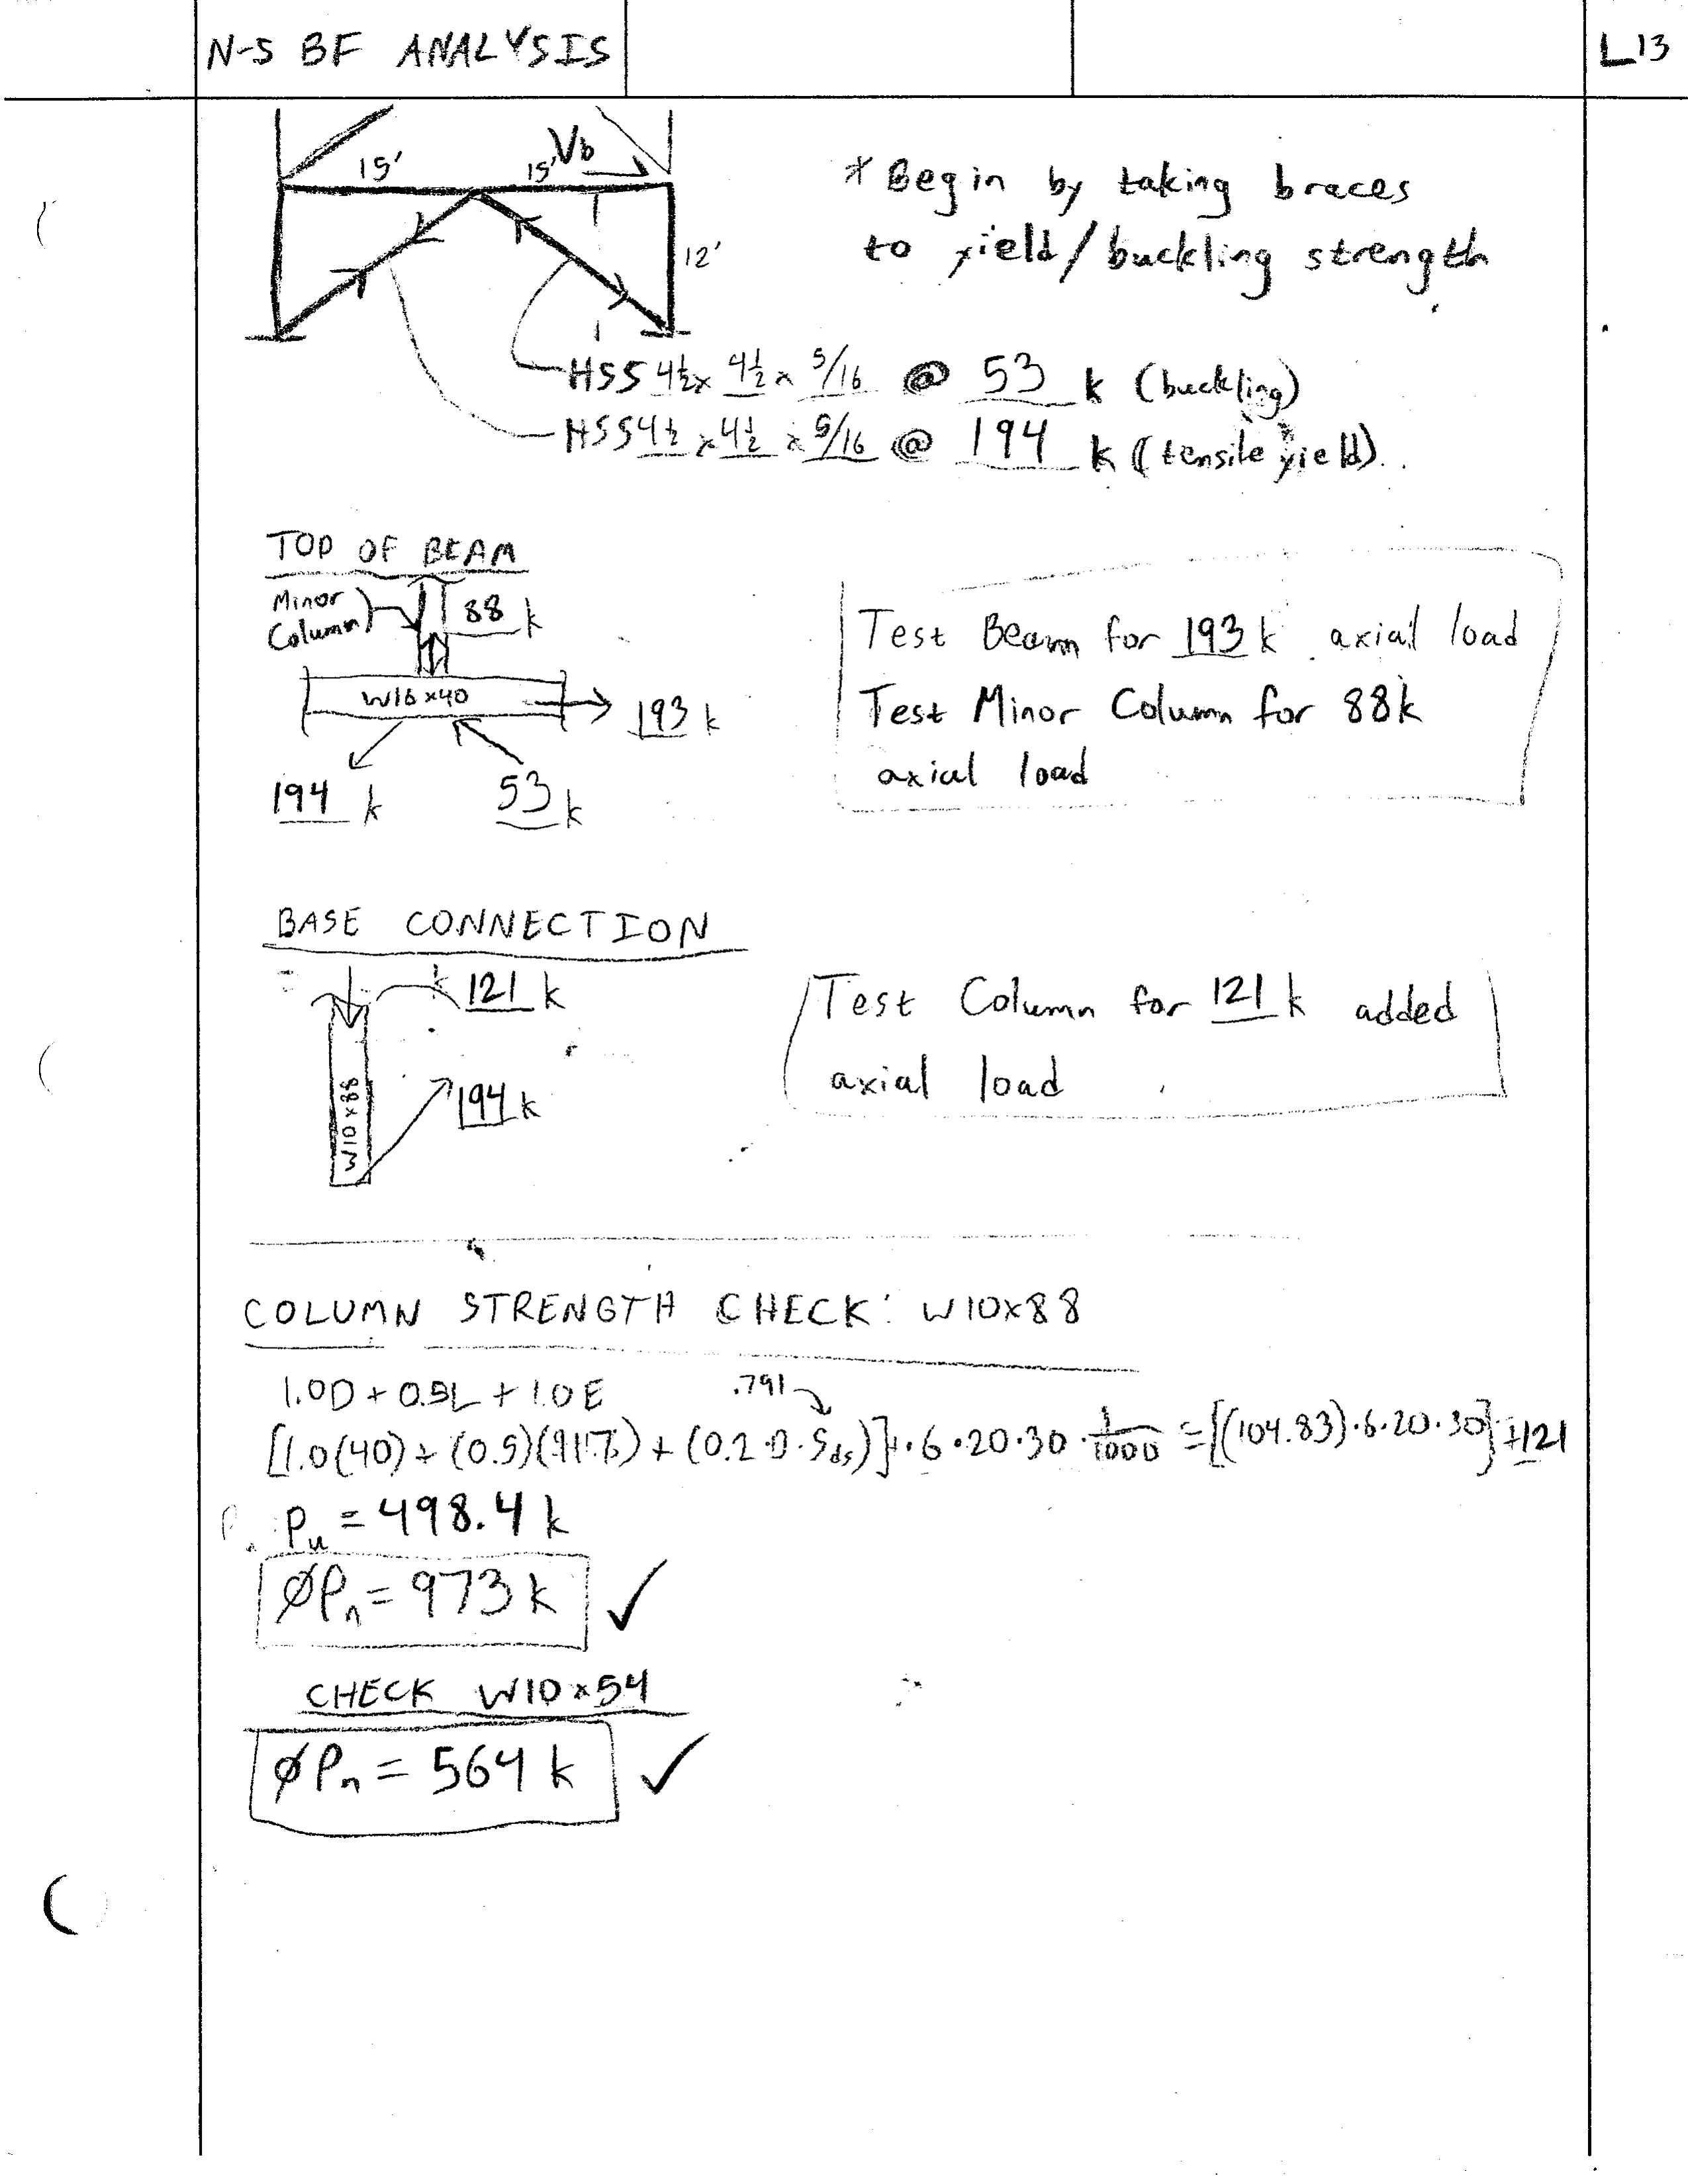 N-S BF ANALYSIS
L13
15' 15' Vb
12'
* Begin by taking braces
to yield/buckling strength
HSS 4½ x 4½ x 5/16 @ 53 k (buckling)
HSS 4½ x 4½ x 5/16 @ 194 k (tensile yield)
TOP OF BEAM
Minor
Column
88 k
W16x40
193 k
194 k
53 k
Test Beam for 193 k axial load
Test Minor Column for 88k
axial load
BASE CONNECTION
121 k
W10x88
194 k
Test Column for 121 k added
axial load
COLUMN STRENGTH CHECK: W10x88
1.0D + 0.5L + 1.0E
.791
+ (0.2·D·Sds)]·6·20·30·1/1000 = [(104.83)·6·20·30] +121
Pu = 498.4 k
ØPn = 973 k ✓
CHECK W10x54
ØPn = 564 k ✓